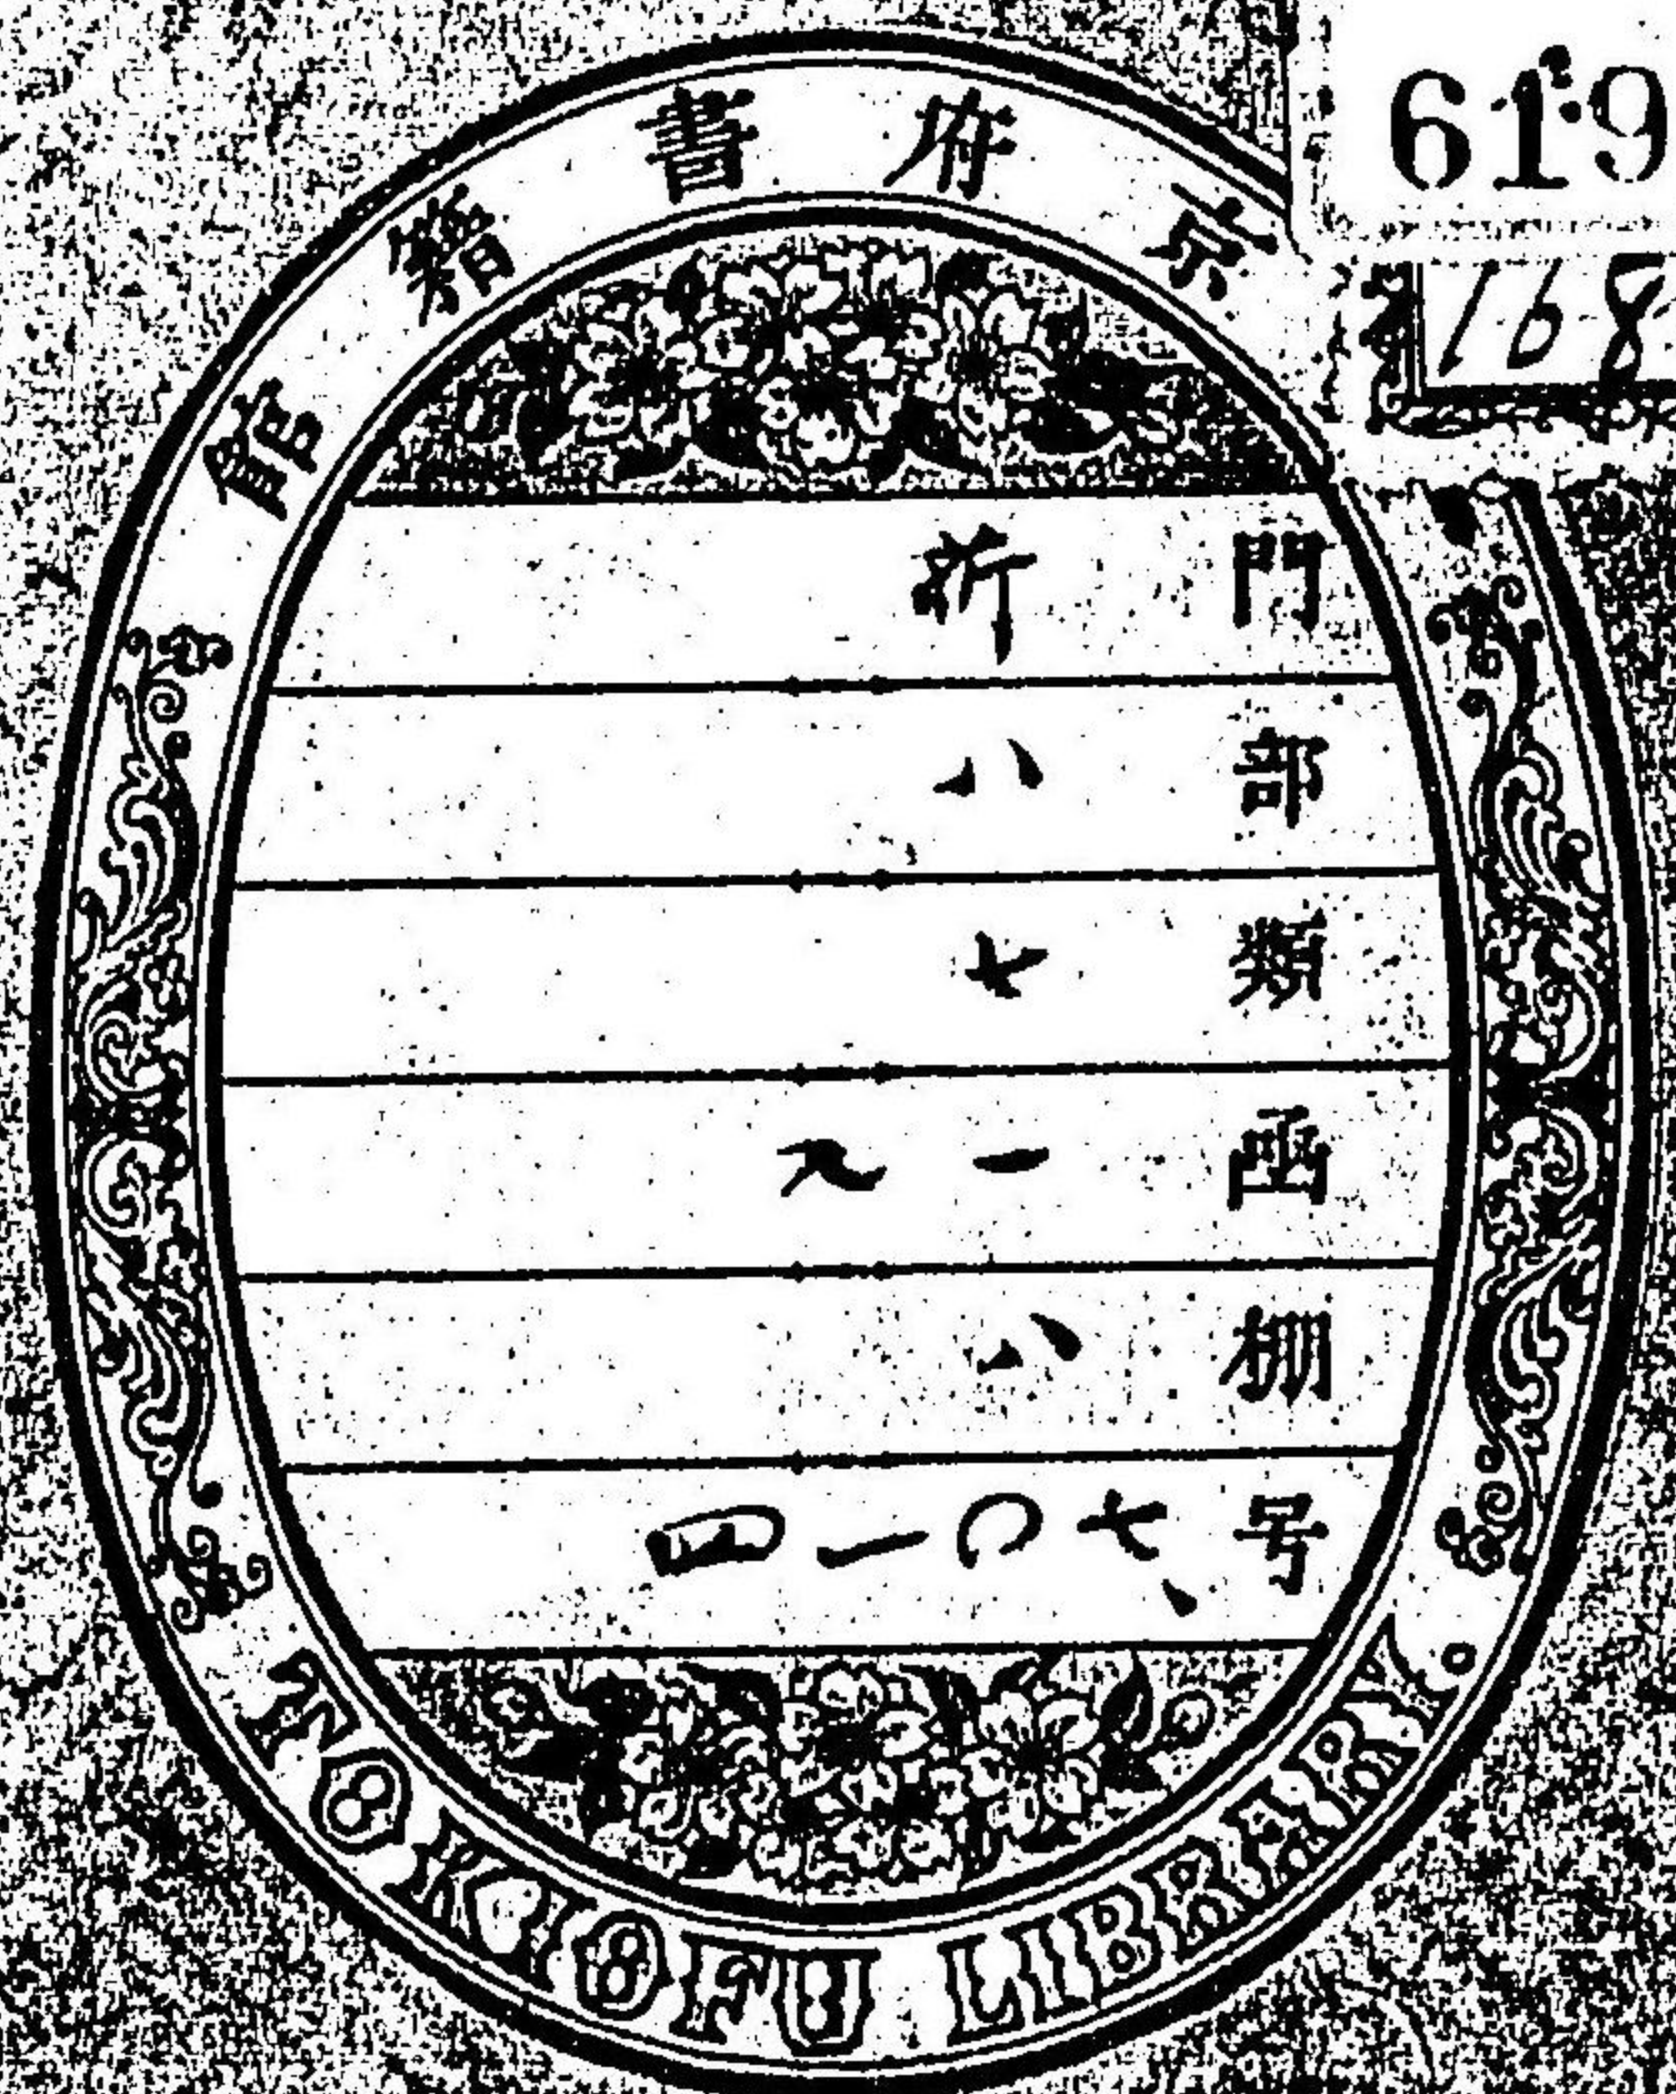 619
168
京府書籍館
門 新
部 八
類 七
凾 一九
棚 八
号 七〇一四
TOKIOFU LIBRARY.